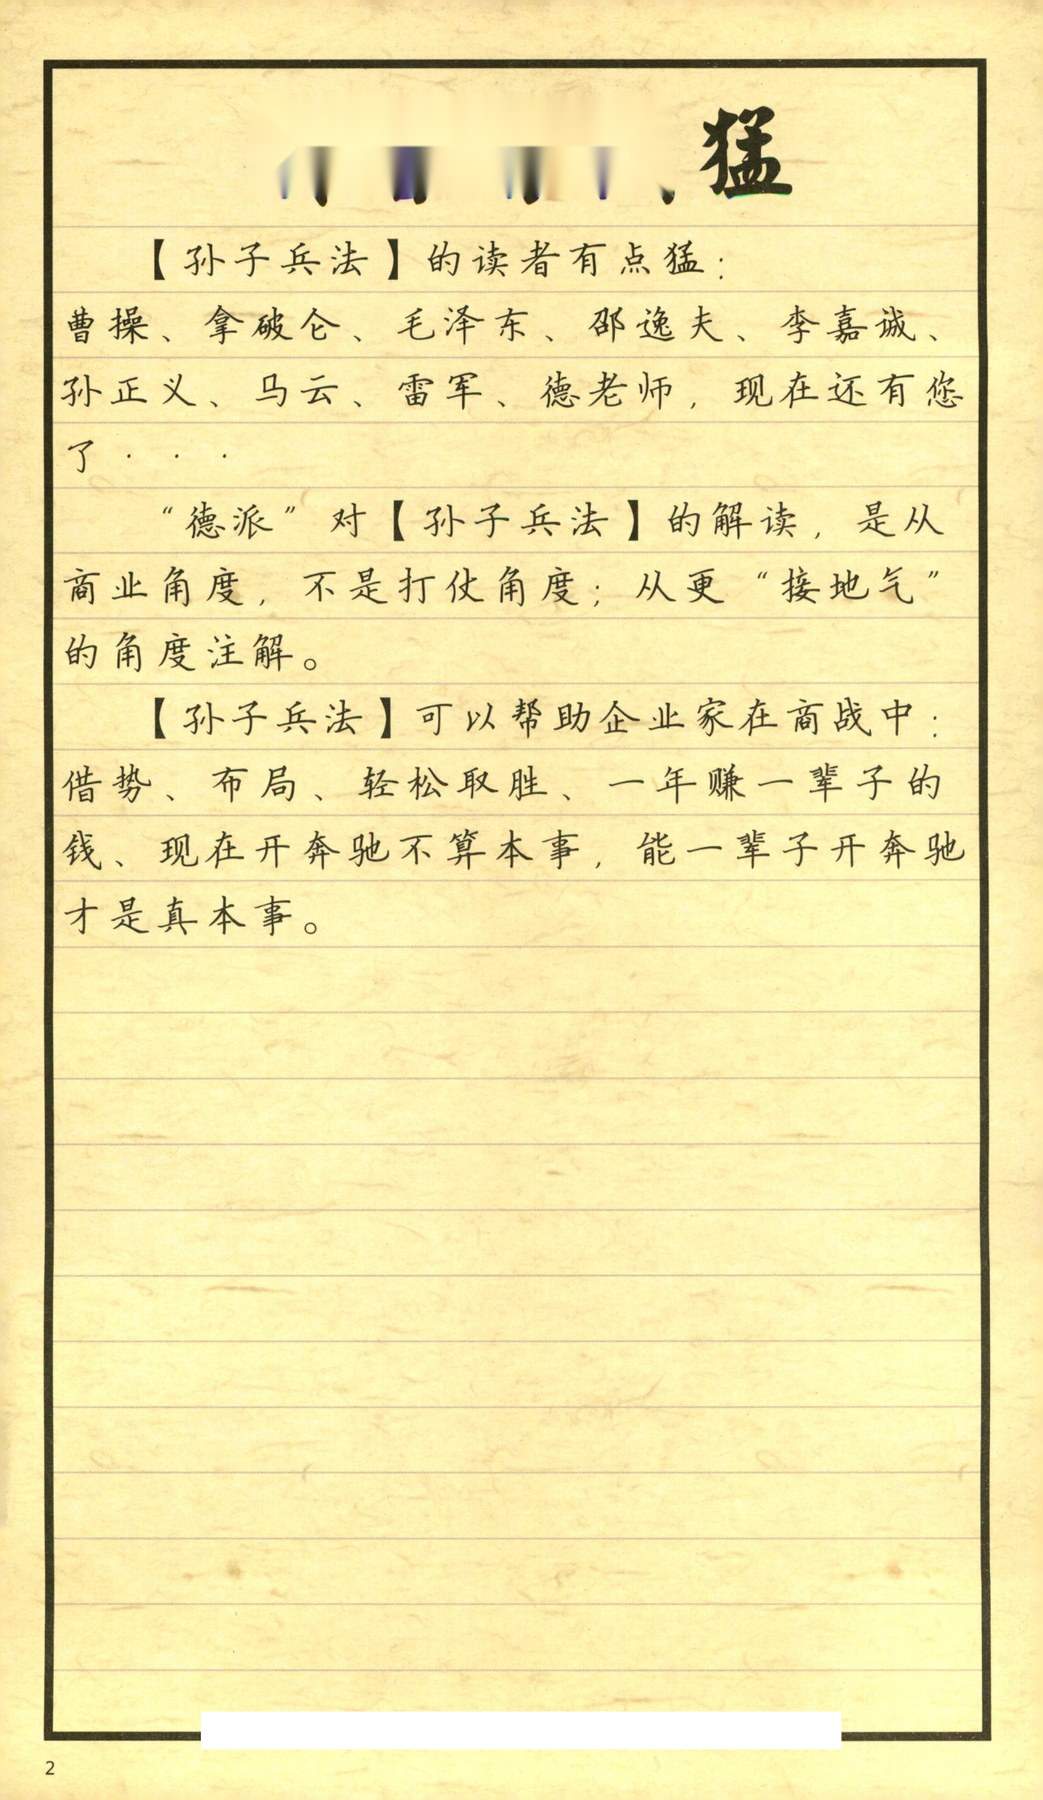 猛
【孙子兵法】的读者有点猛：
曹操、拿破仑、毛泽东、邵逸夫、李嘉诚、
孙正义、马云、雷军、德老师，现在还有您
了···
“德派”对【孙子兵法】的解读，是从
商业角度，不是打仗角度；从更“接地气”
的角度注解。
【孙子兵法】可以帮助企业家在商战中：
借势、布局、轻松取胜、一年赚一辈子的
钱、现在开奔驰不算本事，能一辈子开奔驰
才是真本事。
2